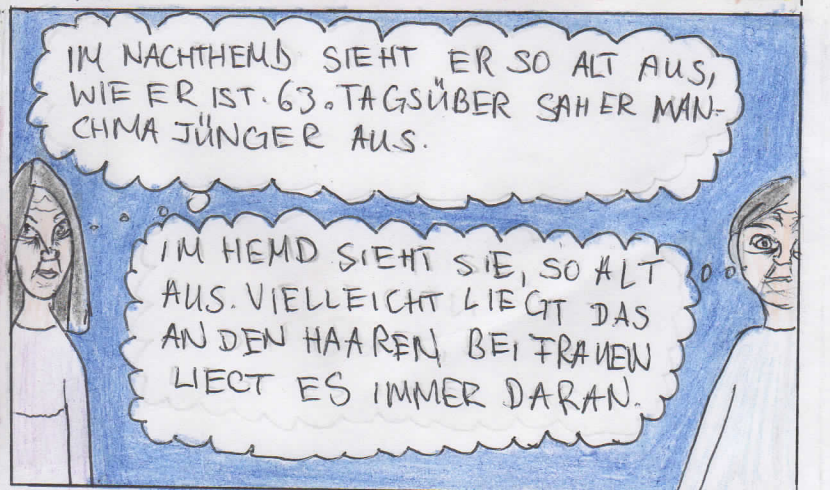 IM NACHTHEMD SIEHT ER SO ALT AUS,
WIE ER IST. 63. TAGSÜBER SAH ER MAN-
CHMA JÜNGER AUS.
IM HEMD SIEHT SIE, SO ALT
AUS. VIELLEICHT LIEGT DAS
AN DEN HAAREN, BEI FRAUEN
LIEGT ES IMMER DARAN.